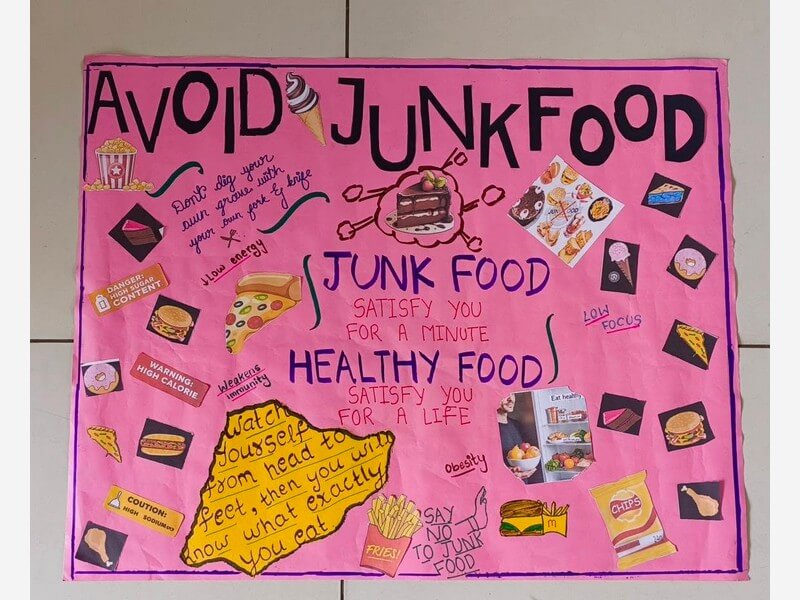 AVOID JUNKFOOD
Dont dig your
own grave with
your own fork & knife
slow energy
DANGER:
HIGH SUGAR
CONTENT
JUNK FOOD
SATISFY YOU
FOR A MINUTE
HEALTHY FOOD
SATISFY YOU
FOR A LIFE
LOW
FOCUS
WARNING:
HIGH CALORIE
Weakens
immunity
Eat healthy
Watch
yourself
from head to
feet, then you will
know what exactly
you eat
Obesity
COUTION:
HIGH SODIUM
FRIES!
SAY
NO
TO JUNK
FOOD
CHIPS